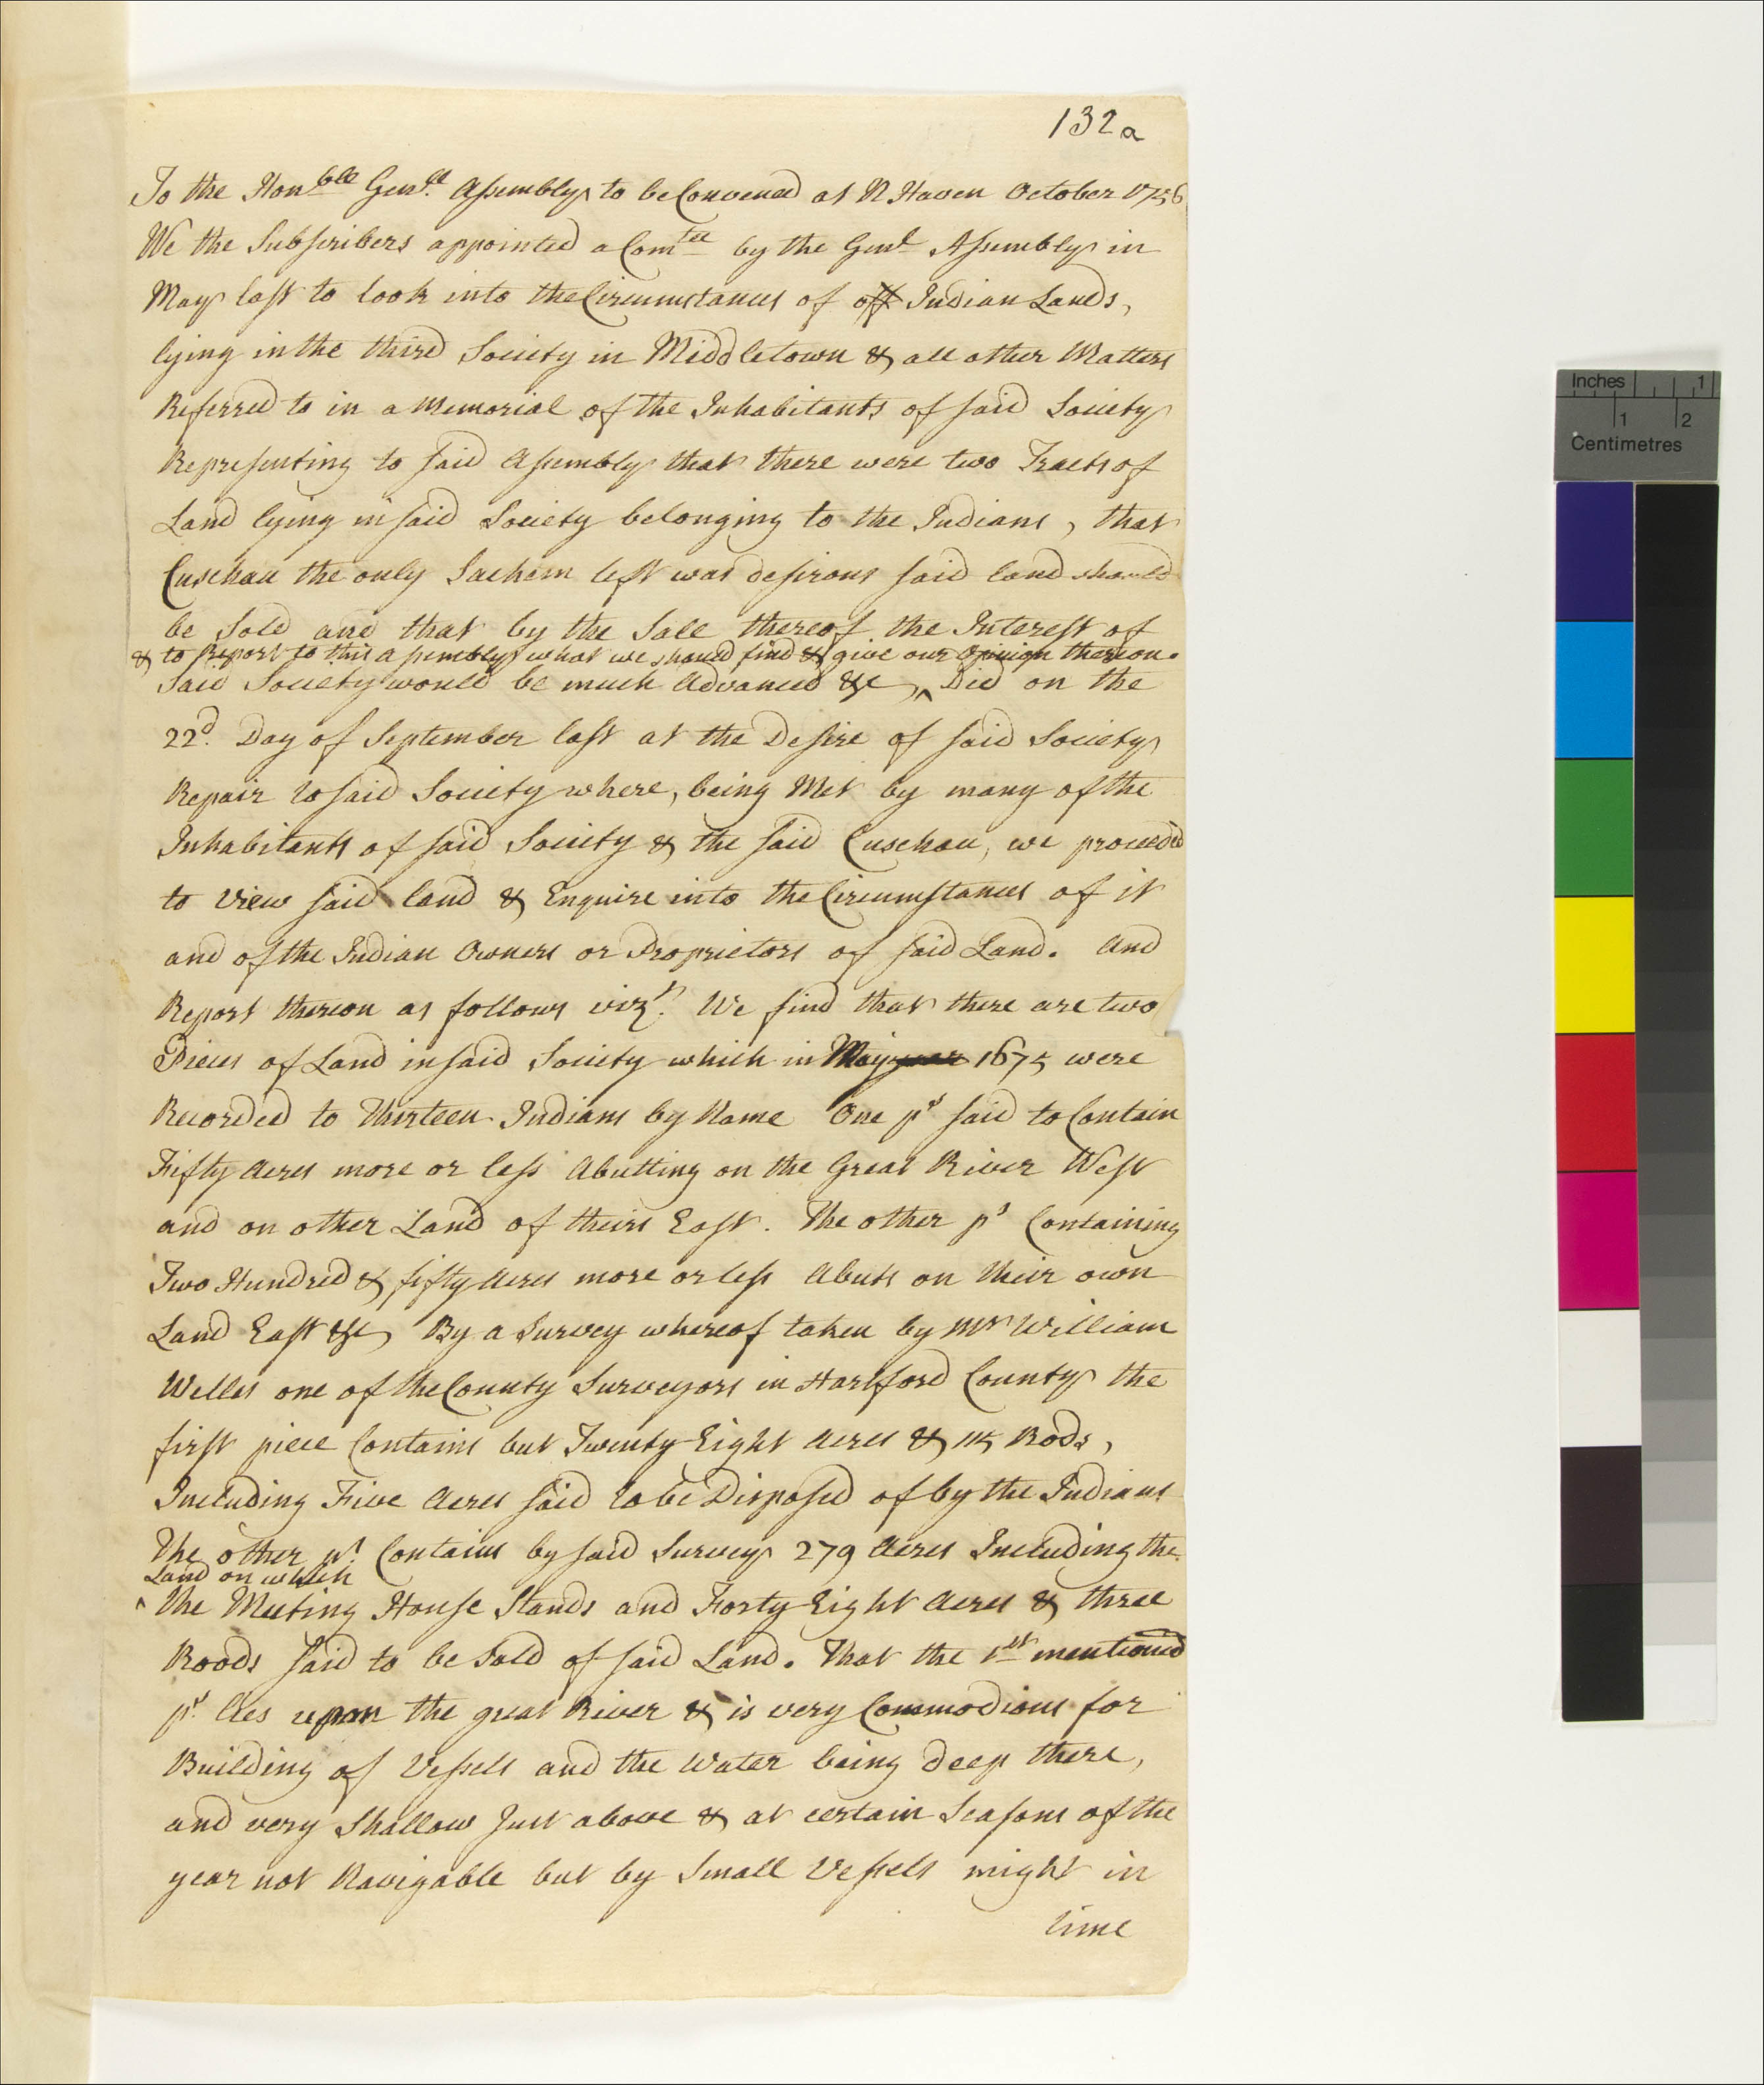 132a
To the Honble Genll Assembly to be Convened at N Haven October 1756
We the Subscribers appointed a Comtee by the Genl Assembly in
May last to look into the Circumstances of off Indian Lands,
lying in the third Society in Middletown & all other Matters
Referred to in a Memorial of the Inhabitants of said Society
Representing to said Assembly that there were two Tracts of
Land lying in said Society belonging to the Indians, that
Cuschau the only Sachem left was desirous said land should
be Sold and that by the Sale thereof the Interest of
& to Report to this assembly what we should find & give our Opinion thereon.
Said Society would be much Advanced &c, ‸ Did on the
22d. Day of September last at the Desire of said Society
Repair to said Society where, being Met by many of the
Inhabitants of said Society & the said Cuschau, we proceeded
to View said land & Enquire into the Circumstances of it
and of the Indian Owners or Proprietors of said Land. And
Report thereon as follows vizt. We find that there are two
Pieces of Land in said Society which in May 1675 were
Recorded to Thirteen Indians by Name One ps said to Contain
Fifty Acres more or less Abutting on the Great River West
and on other Land of theirs East. The other ps Containing
Two Hundred & fifty Acres more or less Abuts on their own
Land East &c, By a Survey whereof taken by Mr William
Welles one of the County Surveyors in Hartford County the
first piece Contains but Twenty Eight Acres & 115 Rods,
Including Five Acres said to be Disposed of by the Indians
The other ps. Contains by said Survey 279 Acres Including the
Land on which
‸ the Meeting House Stands and Forty Eight Acres & three
Roods said to be Sold of said Land. That the 1st mentioned
ps. lies upon the great River & is very Commodious for
Building of Vessels and the Water being deep there,
and very Shallow Just above & at certain Seasons of the
year not Navigable but by Small Vessels might in
time
Inches 1
1 2
Centimetres